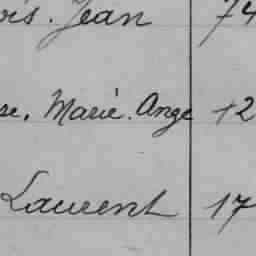 ois. Jean 74
se. Marie. Ange 12
Laurent 17